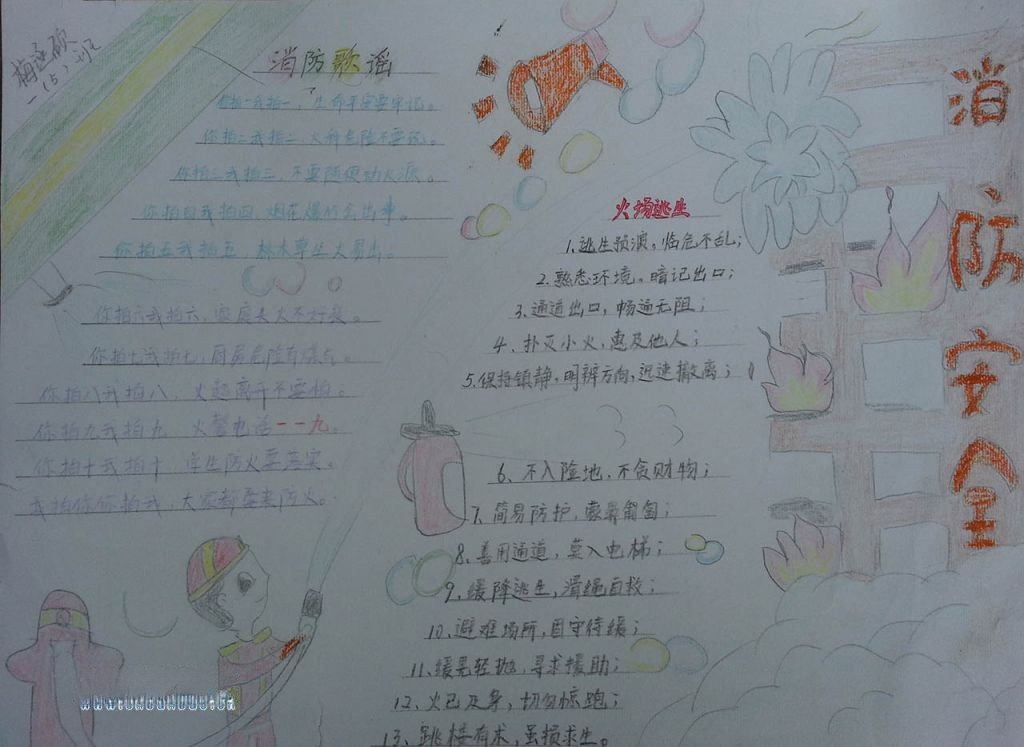 梅
一(5)班
消防歌谣
你拍一我拍一，生命牢牢要牢记。
你拍二我拍二，火种危险不要玩。
你拍三我拍三，不要随便动火源。
你拍四我拍四，烟花爆竹会出事。
你拍五我拍五，林木草丛火易出。
你拍六我拍六，家庭失火不好衰。
你拍七我拍七，厨房危险有煤气。
你拍八我拍八，火起离开不要怕。
你拍九我拍九，火警电话一一九。
你拍十我拍十，学生防火要落实。
我拍你你拍我，大家都要来防火。
火场逃生
1.逃生预演，临危不乱；
2.熟悉环境。暗记出口；
3.通道出口，畅通无阻；
4、扑灭小火，惠及他人；
5.保持镇静，明辨方向，迅速撤离；
6、不入险地，不贪财物；
7、简易防护，蒙鼻匍匐；
8、善用通道，莫入电梯；
9、缓降逃生，滑绳自救；
10、避难场所，固守待缓；
11、缓晃轻抛，寻求援助；
12、火已及身，切勿惊跑；
13、跳楼有术，虽损求生。
消防安全